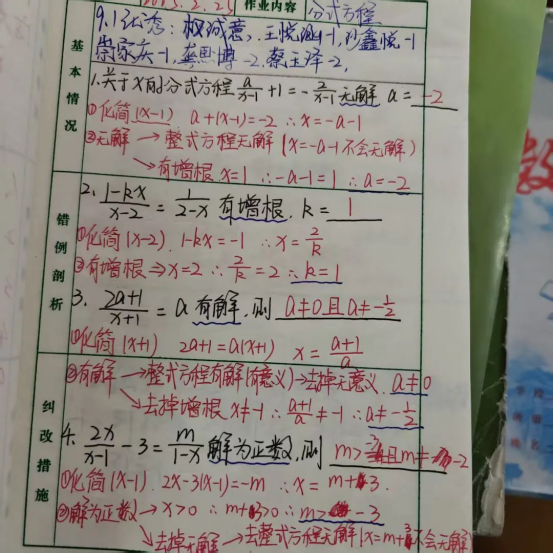 2.25 作业内容 分式方程
基本情况
9.1优秀: 权诚意、王悦涵-1,孙鑫悦-1
崇家庆-1,龚思博-2,蔡玉泽-2,
1.关于x的分式方程 a/(x-1) + 1 = -2/(x-1) 无解 a = -2
①化简(x-1) a+(x-1)=-2 ∴x=-a-1
②无解 → 整式方程无解(x=-a-1不会无解)
→有增根 x=1 ∴-a-1=1 ∴a=-2
错例剖析
2. (1-kx)/(x-2) = 1/(2-x) 有增根. k= 1
①化简(x-2). 1-kx=-1 ∴x=2/k
②有增根⇒x=2 ∴2/k=2 ∴k=1
3. (2a+1)/(x+1) = a 有解,则 a≠0且a≠-1/2
①化简(x+1) 2a+1=a(x+1) x=(a+1)/a
纠改措施
②有解 → 整式方程有解(有意义)→去掉无意义. a≠0
→去掉增根 x≠-1 ∴(a+1)/a≠-1 ∴a≠-1/2
4. 2x/(x-1) - 3 = m/(1-x) 解为正数,则 m>-3且m≠-2
①化简(x-1). 2x-3(x-1)=-m ∴x=m+3.
②解为正数→x>0 ∴m+3>0 ∴m>-3
→去掉无解 →去整式方程无解(x=m+3不会无解